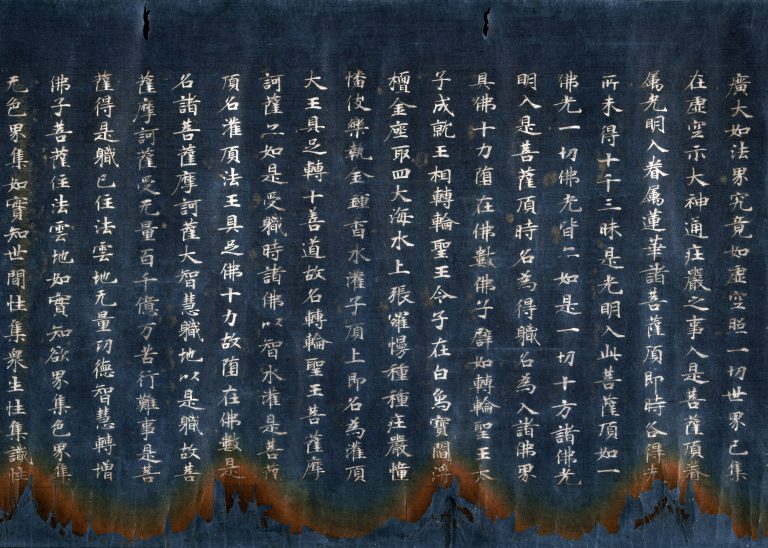 廣大如法界究竟如虛空照一切世界已集
在虛空示大神通莊嚴之事入是菩薩頂眷
属光明入眷属蓮華諸菩薩頂即時各得先
所未得十千三昧是光明入此菩薩頂如一
佛光一切佛光皆亦如是一切十方諸佛光
明入是菩薩頂時名為得職名為入諸佛界
具佛十力墮在佛數佛子譬如轉輪聖王太
子成就王相轉輪聖王令子在白象寶閻浮
檀金座取四大海水上張羅幔種種莊嚴幢
幡伎樂執金鍾香水灌子頂上即名為灌頂
大王具足轉十善道故名轉輪聖王菩薩摩
訶薩亦如是受職時諸佛以智水灌是菩薩
頂名灌頂法王具足佛十力故墮在佛數是
名諸菩薩摩訶薩大智慧職地以是職故菩
薩摩訶薩受无量百千億万苦行難事是菩
薩得是職已住法雲地无量功德智慧轉增
佛子菩薩住法雲地如實知欲界集色界集
无色界集如實知世間性集衆生性集識性